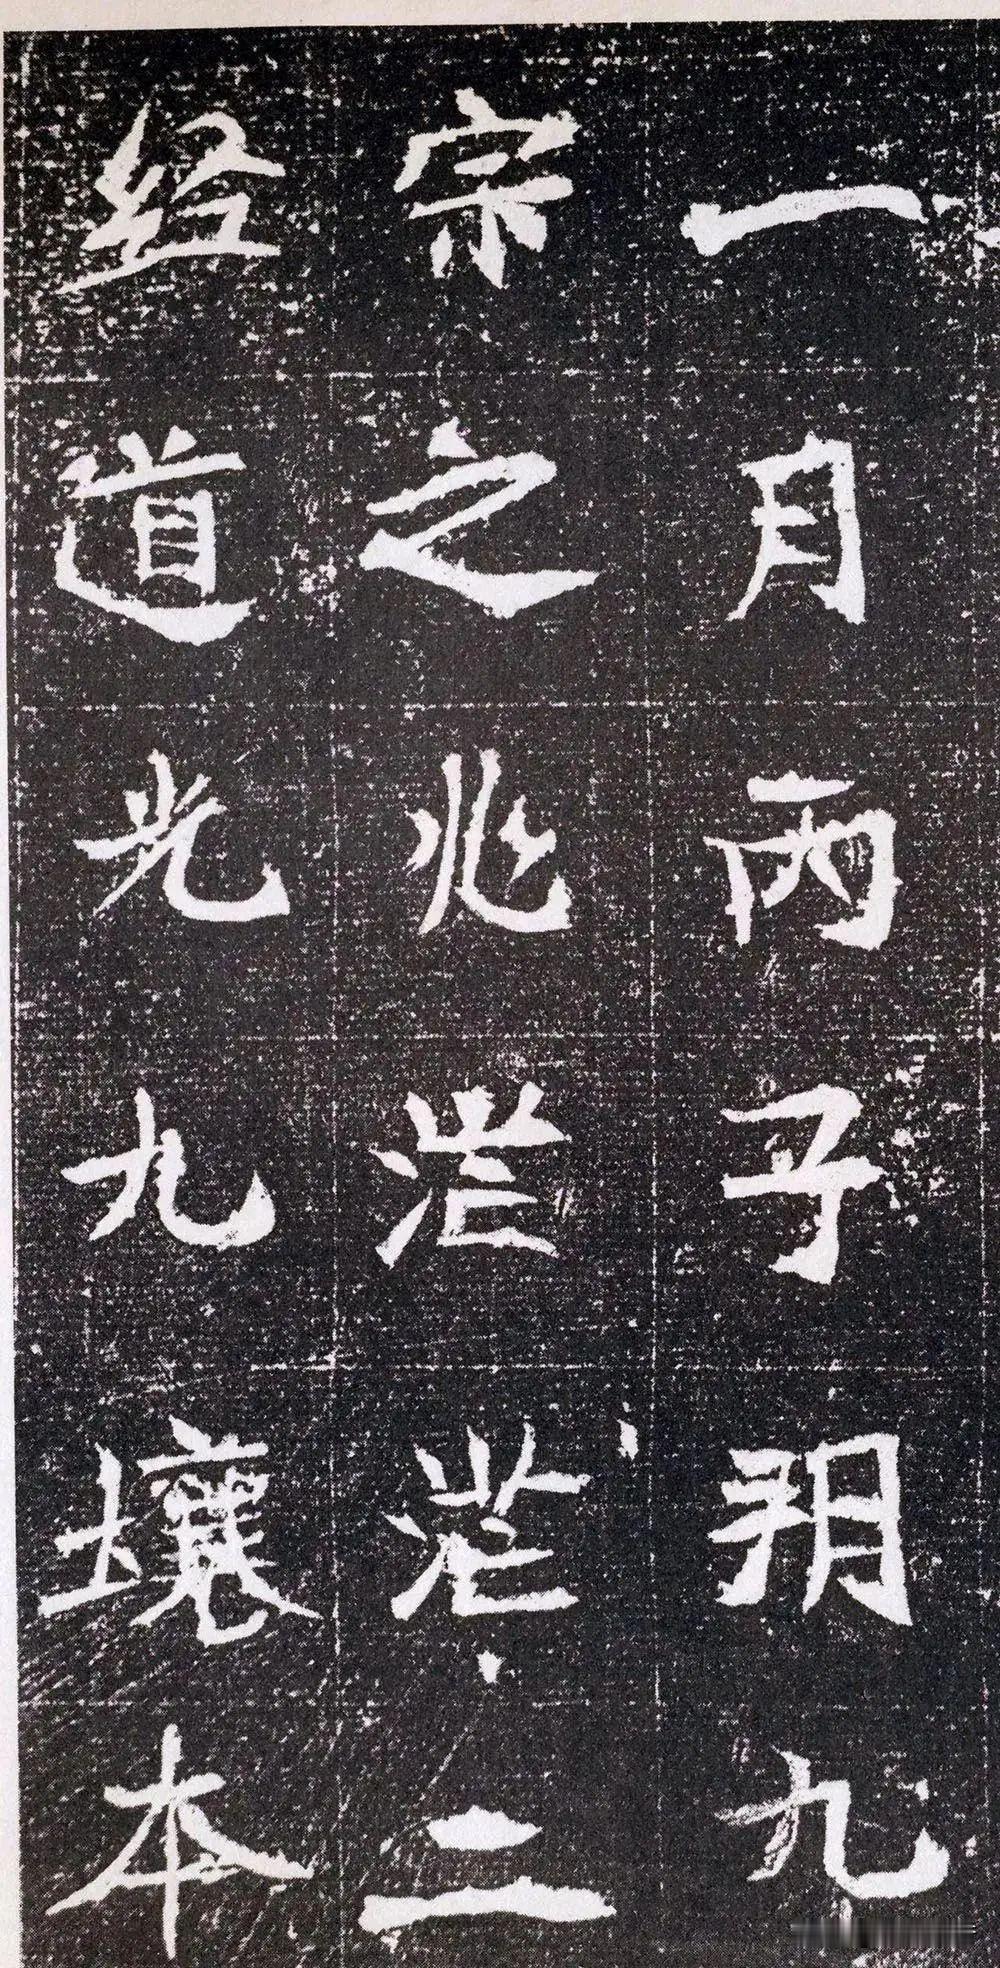 一月丙子朔九
宗之兆茫茫二
经道光九壤本